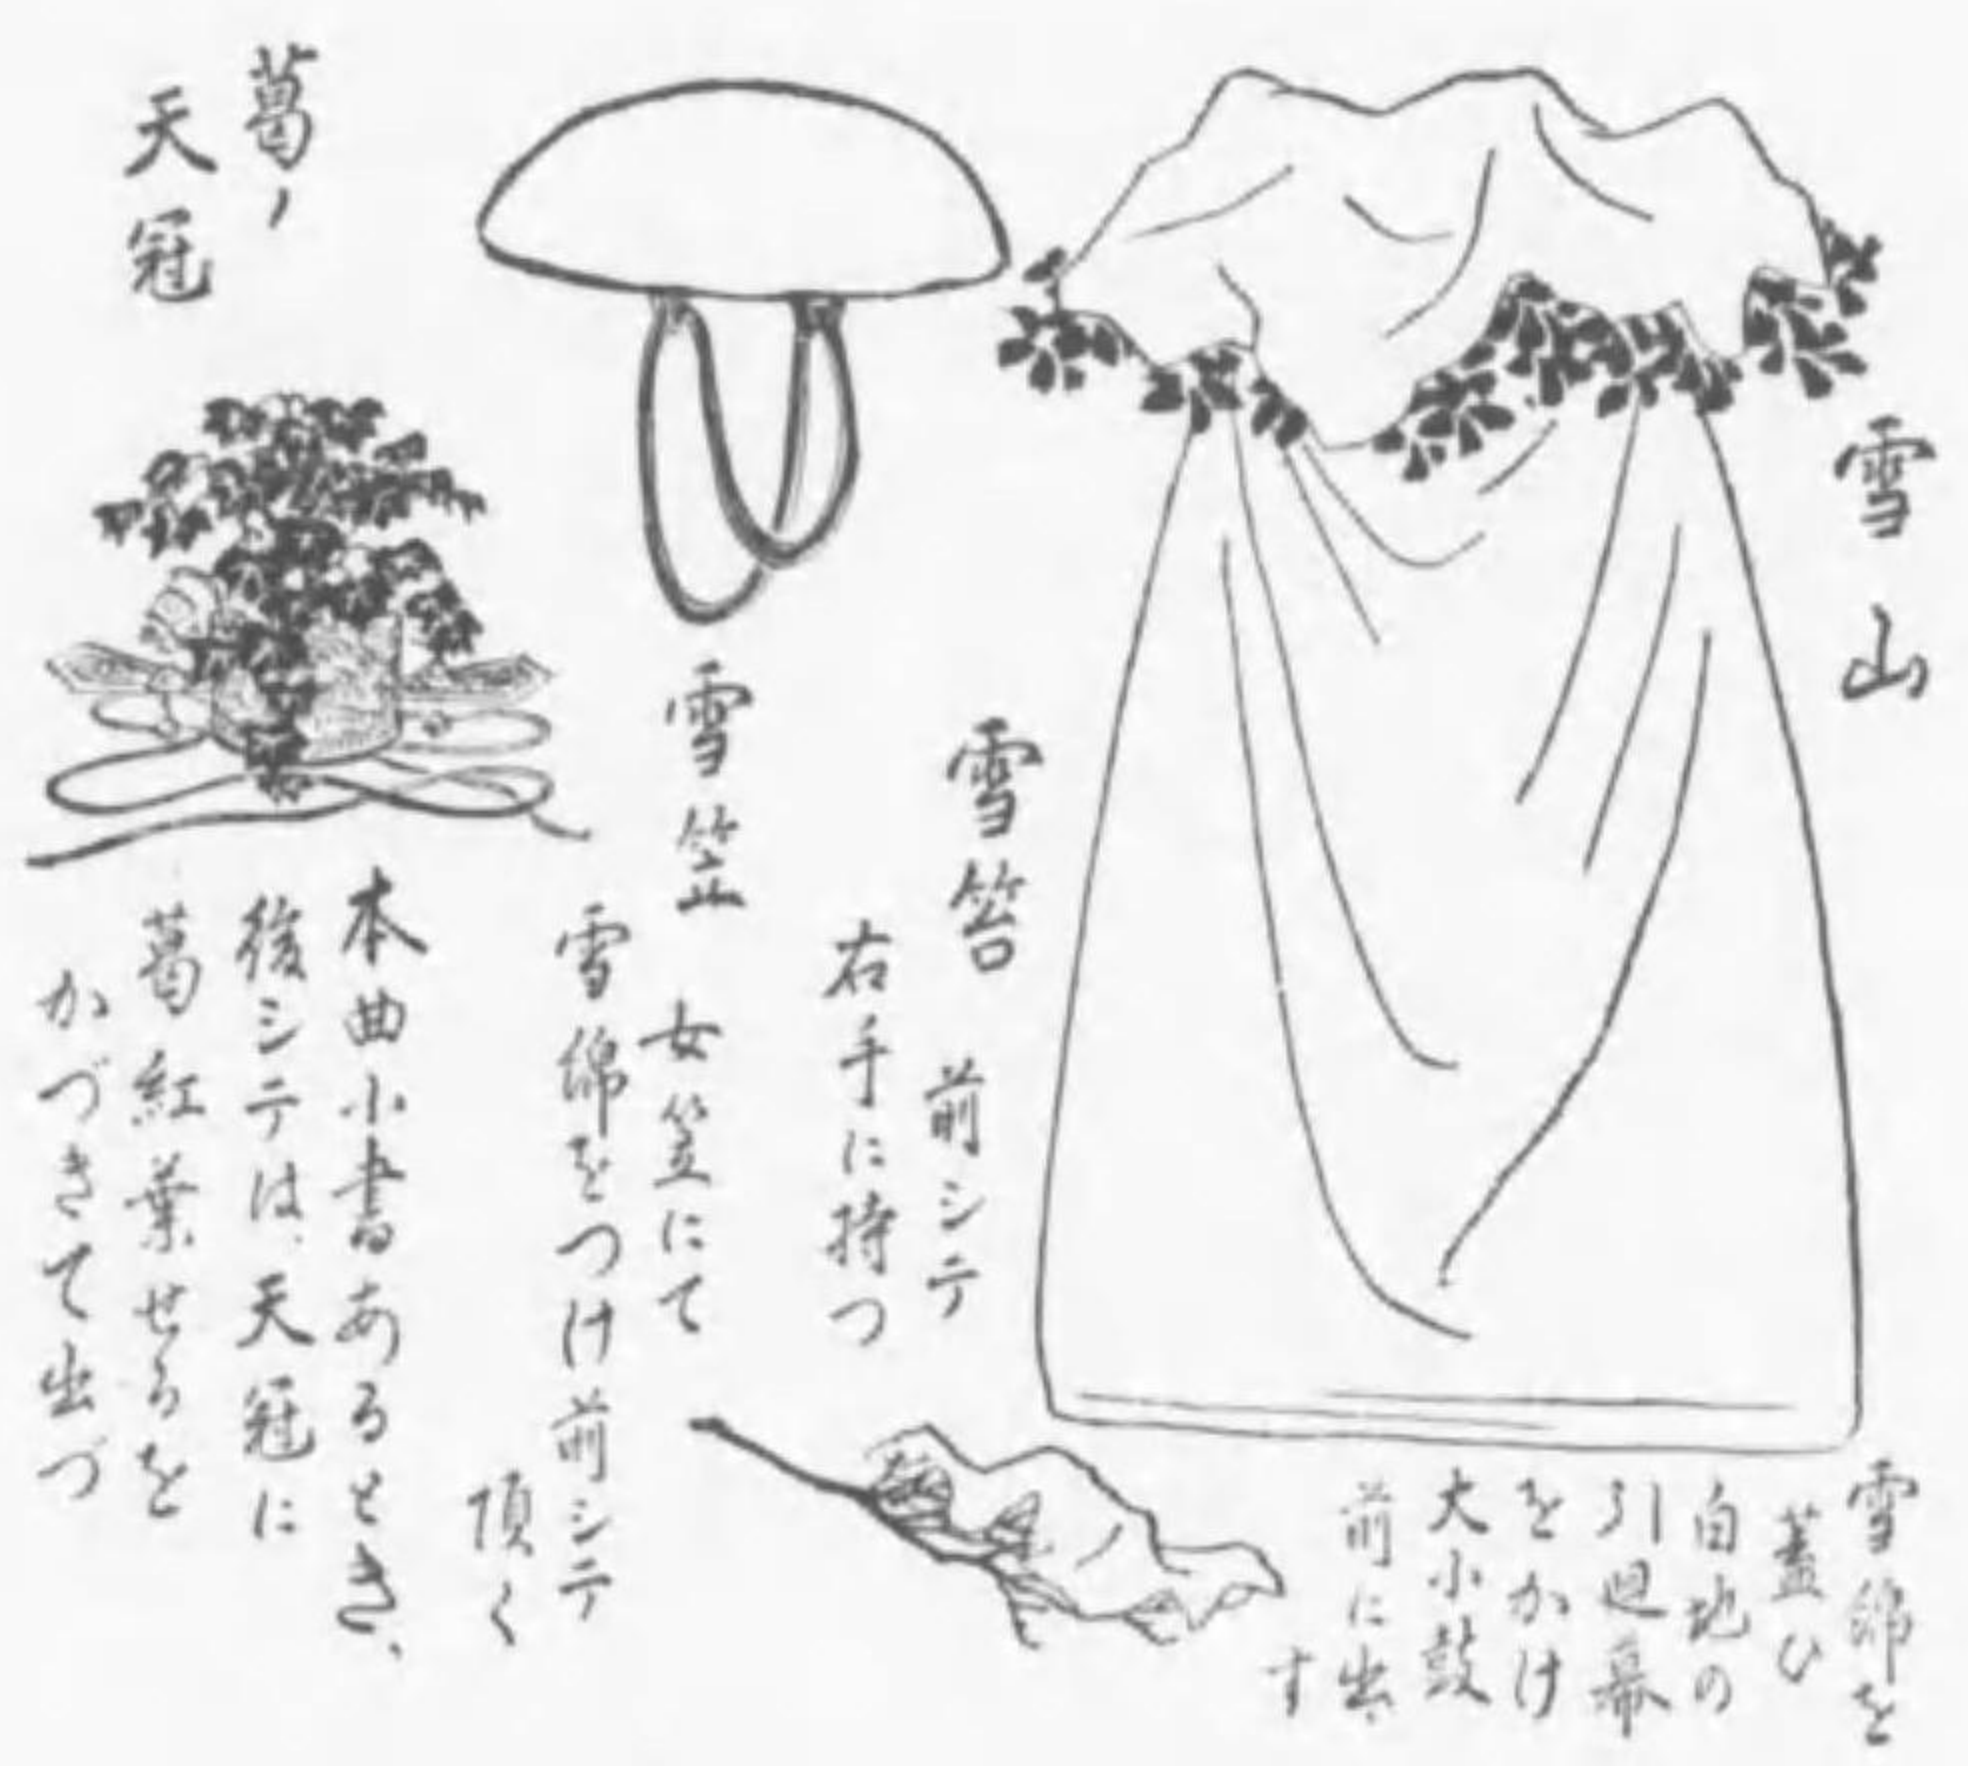 雪山
雪綿を
蓋ひ
白地の
引廻幕
をかけ
大小鼓
前に出
す
雪笞
前シテ
右手に持つ
雪笠
女笠にて
雪綿をつけ前シテ
頂く
葛ノ
天冠
本曲小書あるとき、
後シテは、天冠に
葛紅葉せるを
かづきて出づ